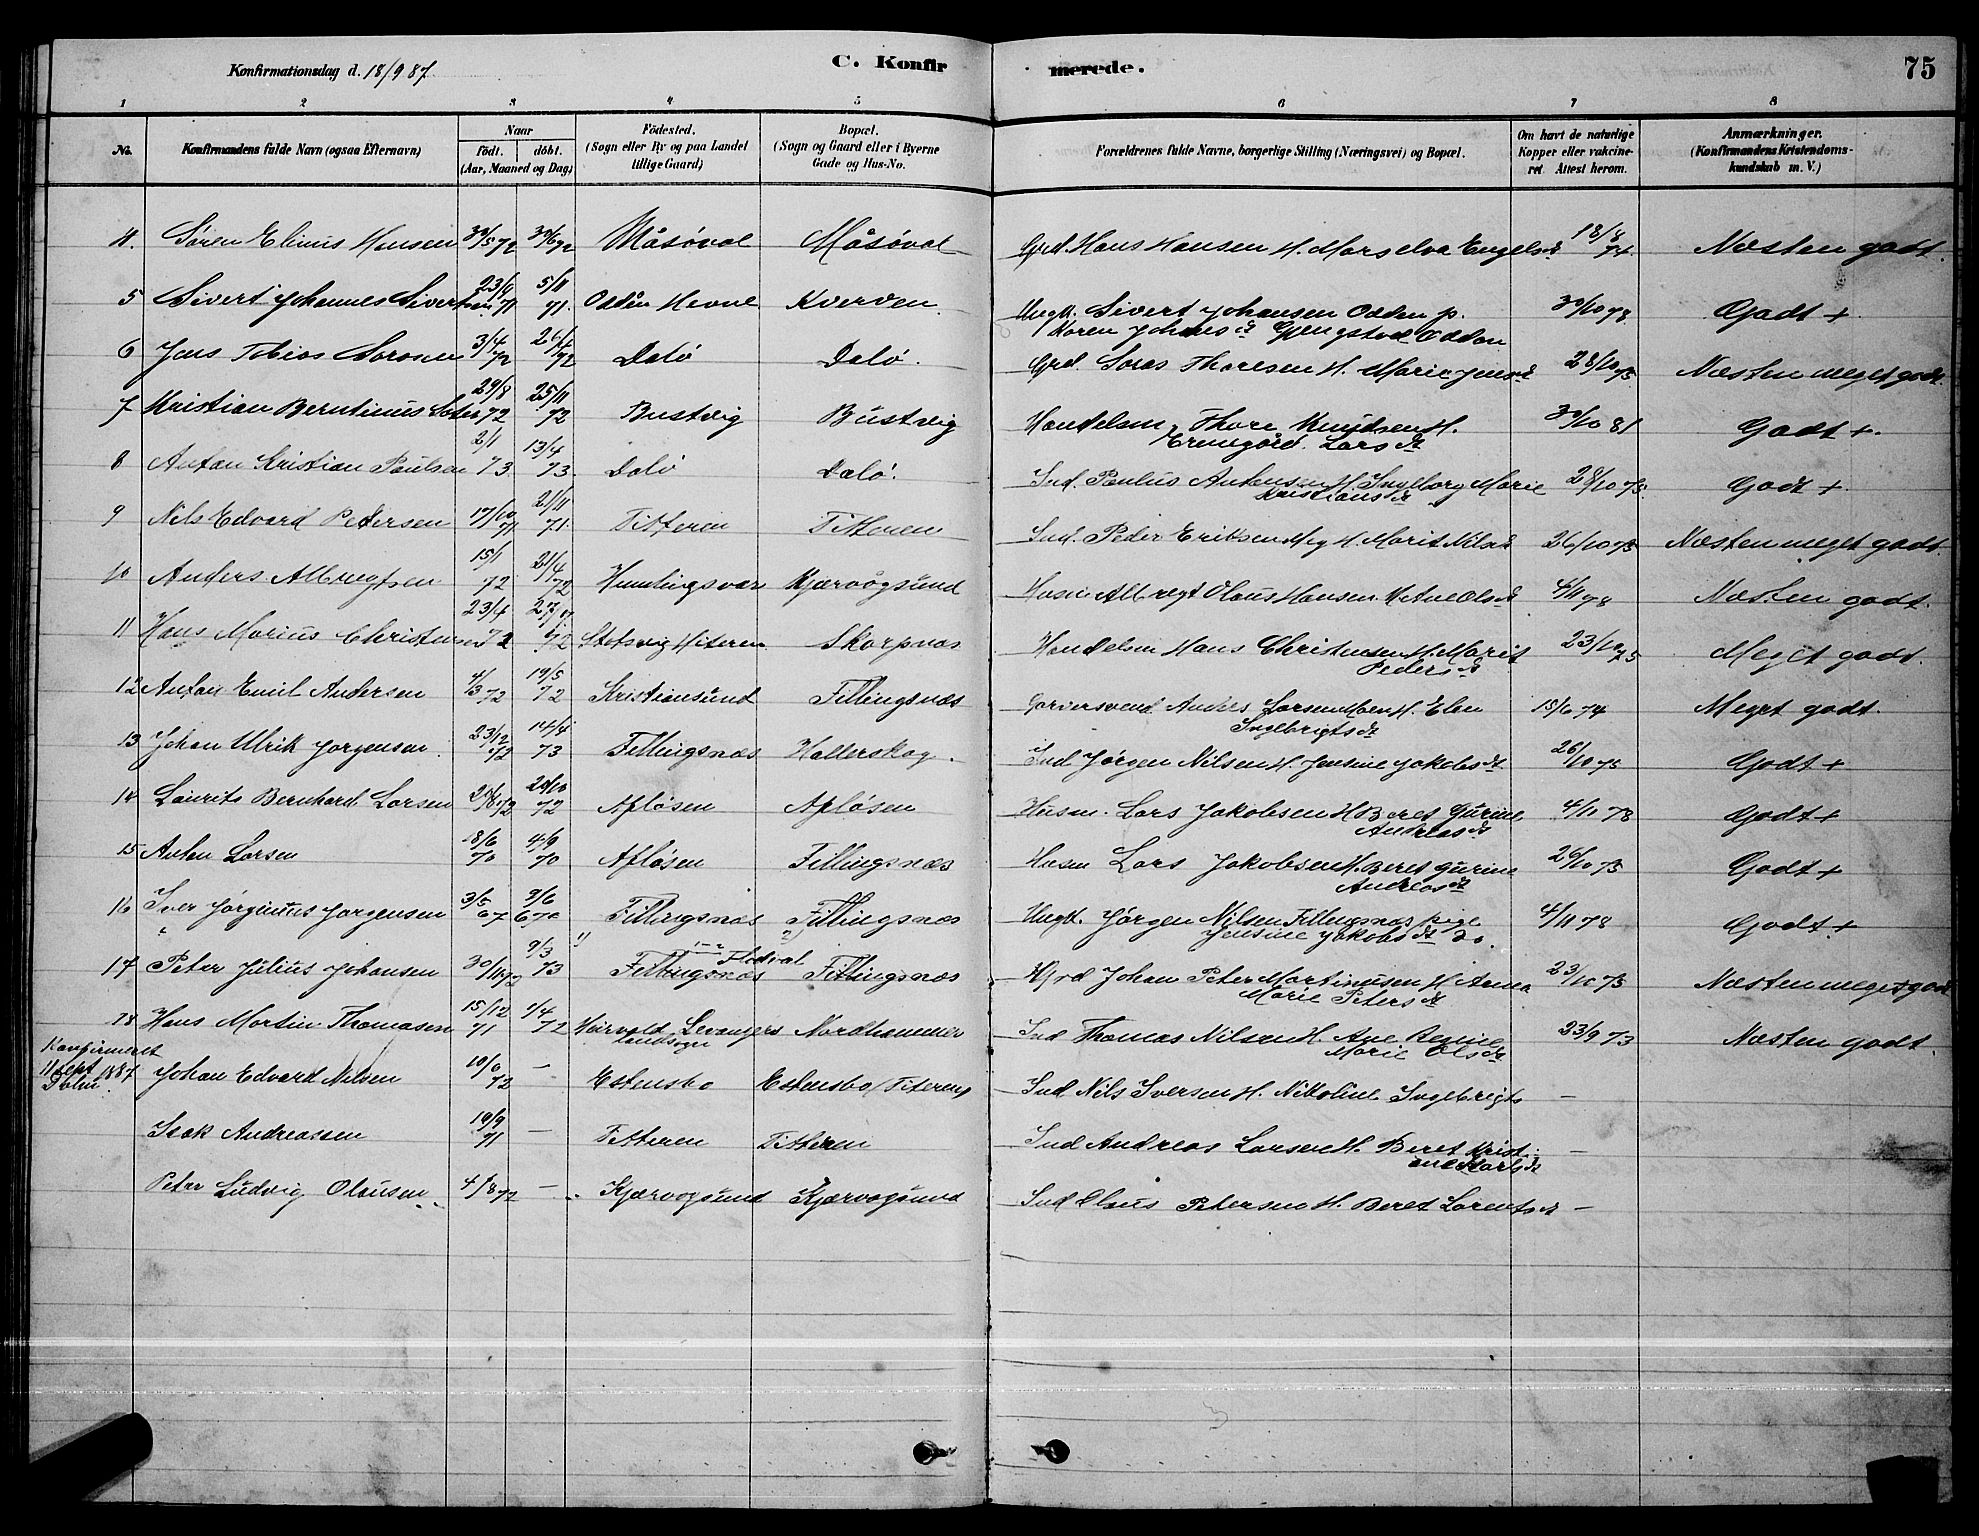 Konfirmationsdag d. 18/9 87. C. Konfirmerede. 75
1 2 3 4 5 6 7 8
No. Konfirmandens fulde Navn (ogsaa Efternavn) Naar födt. döbt. (Aar, Maaned og Dag) Födested. (Sogn eller By og paa Landet tillige Gaard) Bopæl. (Sogn og Gaard eller i Byerne Gade og Hus-No. Forældrenes fulde Navne, borgerlige Stilling (Næringsvei) og Bopæl. Om havt de naturlige Kopper eller vakcineret. Attest herom. Anmærkninger. (Konfirmandens Kristendomskundskab m. V.)
4. Søren Elinus Hansen 30/5 72 30/6 72 Måsøval Måsøval Grd. Hans Hansen H. Engelsd 18/8 74 Næsten godt.
5 Sivert Johannes Sivertsen 23/9 71 5/11 71. Odden Hevne Kverven Ungk. Sivert Johansen Odden p.
Karen Johnsd Gjengstad Odden 30/10 78 Godt +
6 Jens Tobias Sorosen 3/4 72 26/4 72 Dolø Dolø. Grd. Soras Thoresen H. Marie Jensd 28/10 75 Næsten meget godt.
7 Kristian Berntinus 29/8 72 25/11 72 Bustvig Bustvig Handelsm. Thore Knudsen H.
Ermegård Larsd 30/10 81 Godt +.
8 Anton Kristian Paulsen 2/1 73 13/4 73. Dolø Dolø. Ind. Paulus Antonsen H. Ingeborg Marie
Kristiansd 28/10 75. Godt +
9 Nils Edvard Pedersen 17/10 71 21/11 71. Titteren Titteren Ind. Peder Eriksen H. Marit Nilsd 26/10 75 Næsten meget godt.
10 Anders Albregtsen 15/1 72 21/4 72 Humlingsvær Kjærvågsund Husm Albregt Olaus Hansen H. Olsd 4/11 78 Næsten godt.
11 Hans Marius Christensen 23/4 72 Hiteren Skarpnæs Handelsm Hans Christensen H. Marit
Pedersd 23/10 75 Meget godt.
12 Anton Emil Andersen 4/3 72 19/5 72 Kristiansund Fillingsnæs Garversvend Anders Larsen H. Elen
Ingebrigtsd 15/6 74 Meget godt.
13 Johan Ulrik Jorgensen. 23/12 72 14/4 73 Fillingsnæs Hallerskog. Ind Jørgen Nilsen H. Jensine Jakobsd. 26/10 75 Godt +
14 Laurits Bernhard Larsen 27/8 72 20/10 72 Afløsen Afløsen Husm. Lars Jakobsen H Beret Gurine
Andreasd 4/11 78 Godt +
15 Anton Larsen 18/6 70 4/9 70 Afløsen Fillingsnæs Husm Lars Jakobsen H. Beret Gurine
Andreasd 26/10 75 Godt +
16 Iver Jørginus Jorgensen 3/5 67 Fillingsnæs Fillingsnæs Ungk. Jørgen Nilsen Fillingsnæs pige
Jensine Jakobsd do. 4/11 78 Godt +
17 Peter Julius Johansen 30/11 72 9/3 73 Fillingsnæs Fillingsnæs Grd Johan Peter Martinusen H Anna
Marie Petersd 23/10 75 Næsten meget godt
18 Hans Martin Thomasen 15/12 71 1/4 72 Levangers
landsogn Nordhammer Ind Thomas Nilsen H. Ane
Marie Olsd 23/9 73 Næsten godt.
Konfirmeret
11 sept 1887
Dolm.
Johan Edvard Nilsen 10/6 72 – Estensbo Estensbo Ind Nils Iversen H. Nikoline Ingebrigts –
Isak Andreassen 19/9 71 – Titteren Titteren Ind Andreas Larsen H. Beret Kristine
Karlsd –
Peter Ludvig Olausen 4/8 72 – Kjærvogsund Kjærvogsund Ind Olaus Petersen H. Beret Lorentsd –